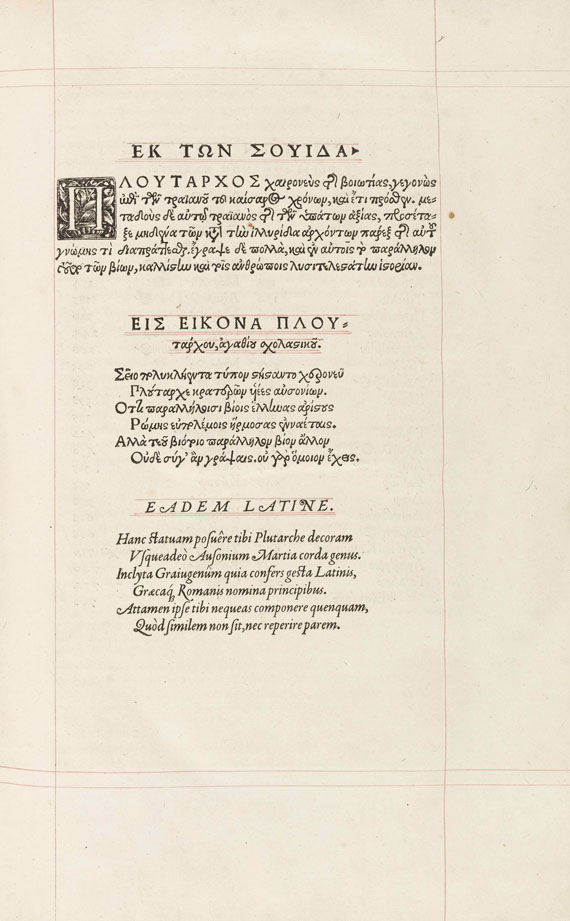 ΕΚ ΤΩΝ ΣΟΥΙΔΑ
ΠΛΟΥΤΑΡΧΟΣ χαιρονεὺς τῆς βοιωτίας, γεγονὼς
ἐπὶ τῶν τραϊανοῦ τοῦ καίσαρος χρόνων, καὶ ἔτι πρόσθεν. με-
ταδοὺς δὲ αὐτῷ τραϊανὸς τῆς τῶν ὑπάτων ἀξίας, προσέτα-
ξε μηδένα τῶν κατὰ τὴν ἰλλυρίδα ἀρχόντων παρὲξ τῆς αὐτοῦ
γνώμης τὶ διαπράττεσθαι. ἔγραψε δὲ πολλὰ, καὶ ἐν αὐτοῖς τὸ παράλληλον
τῶν βίων, καλλίστην καὶ τοῖς ἀνθρώποις λυσιτελεστάτην ἱστορίαν.
ΕΙΣ ΕΙΚΟΝΑ ΠΛΟΥ-
τάρχου, ἀγαθίου σχολαστικοῦ.
Σεῖο πολυκλήεντα τύπον στήσαντο χερονεῦ
Πλούταρχε κρατερῶν υἱέες αὐσονίων.
Ὅττι παραλλήλοισι βίοις ἕλληνας ἀρίστους
Ῥώμης εὐπολέμοις ἥρμοσας ἐνναέταις.
Ἀλλὰ τεοῦ βιότοιο παράλληλον βίον ἄλλον
Οὐδὲ σύγ' ἂν γράψαις. οὐ γὰρ ὅμοιον ἔχεις.
EADEM LATINE.
Hanc statuam posuêre tibi Plutarche decoram
Vsqueadeò Ausonium Martia corda genus.
Inclyta Graiugenûm quia confers gesta Latinis,
Græcaq; Romanis nomina principibus.
Attamen ipse tibi nequeas componere quenquam,
Quòd similem non sit, nec reperire parem.